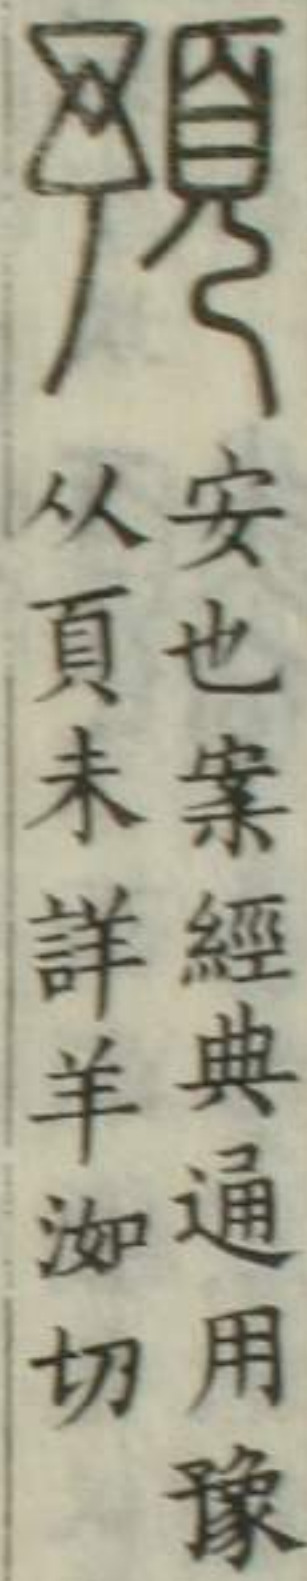 預
安也案經典通用豫
从頁未詳羊洳切